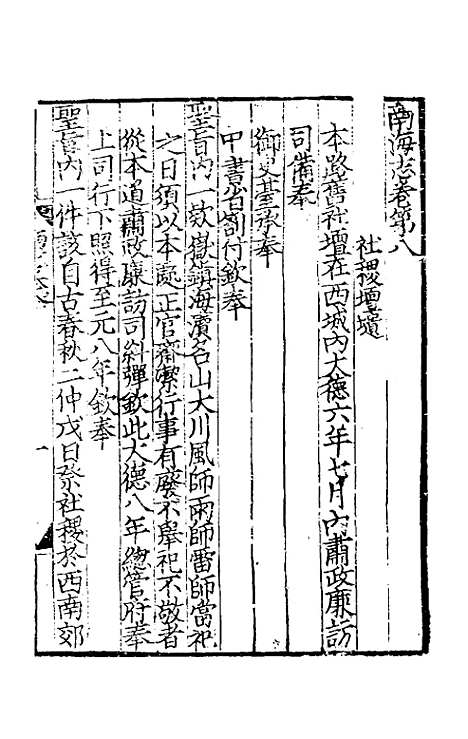 南海志卷第八
社稷壇壝
本路舊社壇在西城內大德六年七月內肅政廉訪
司備奉
御史臺承奉
中書省劄付欽奉
聖旨內一款嶽鎮海瀆名山大川風師雨師雷師當祀
之日須以本處正官齋潔行事有廢不舉祀不敬者
從本道肅政廉訪司糾彈欽此大德八年總管府奉
上司行下照得至元八年欽奉
聖旨內一件該自古春秋二仲戊日祭社稷於西南郊
一